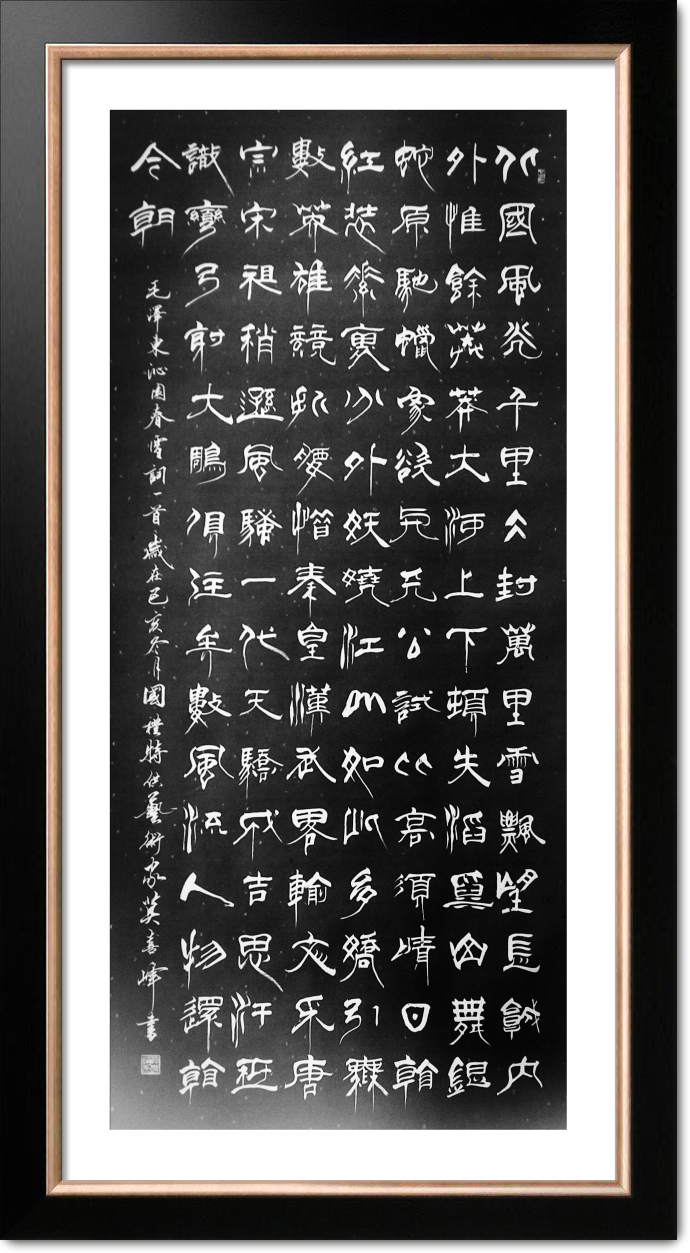 北國風光千里仌封萬里雪飄望長城内
外惟餘莽莽大河上下頓失滔滔山舞銀
蛇原馳蠟象欲與天公試比高須晴日看
紅裝素裹分外妖嬈江山如此多嬌引無
數英雄競折腰惜秦皇漢武略輸文采唐
宗宋祖稍遜風騷一代天驕成吉思汗祗
識彎弓射大鵰俱往矣數風流人物還看
今朝
毛澤東沁園春雪詞一首歲在己亥冬月國禮特供藝術家莫喜峰書